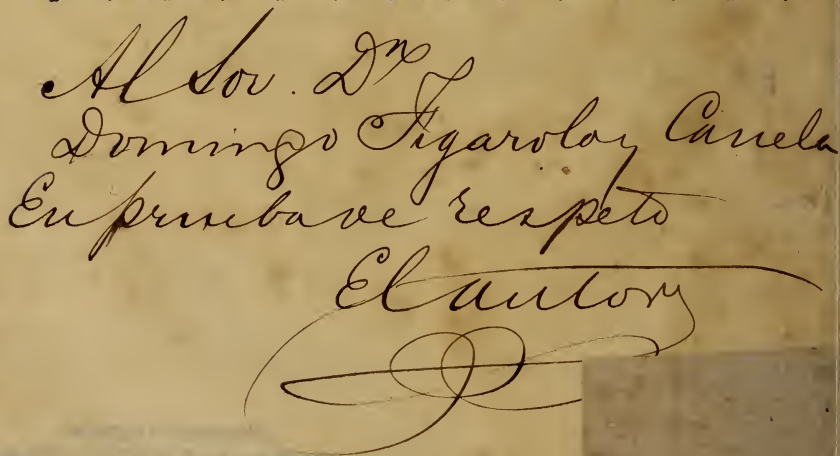 Al Sor. Dn
Domingo Figarola y Canela
En prueba de respeto
El autor